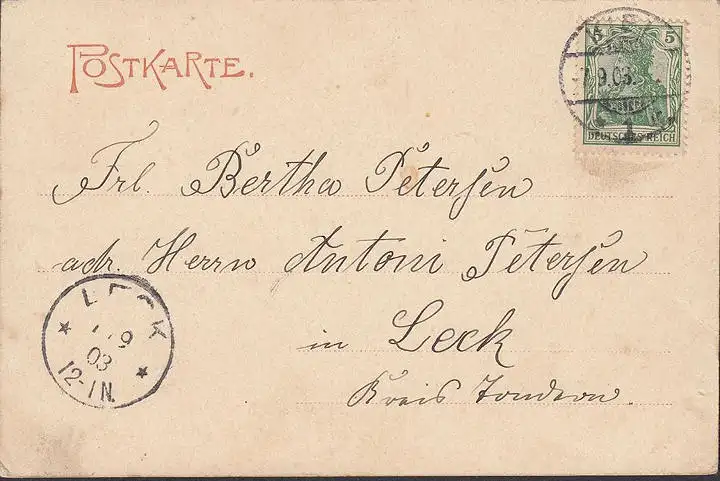 POSTKARTE.
5 5
7.9.03.
1
DEUTSCHES REICH
Frl. Bertha Petersen
adr. Herrn Antoni Petersen
in Leck
Kreis Tondern.
LECK
9
03
12-1N.